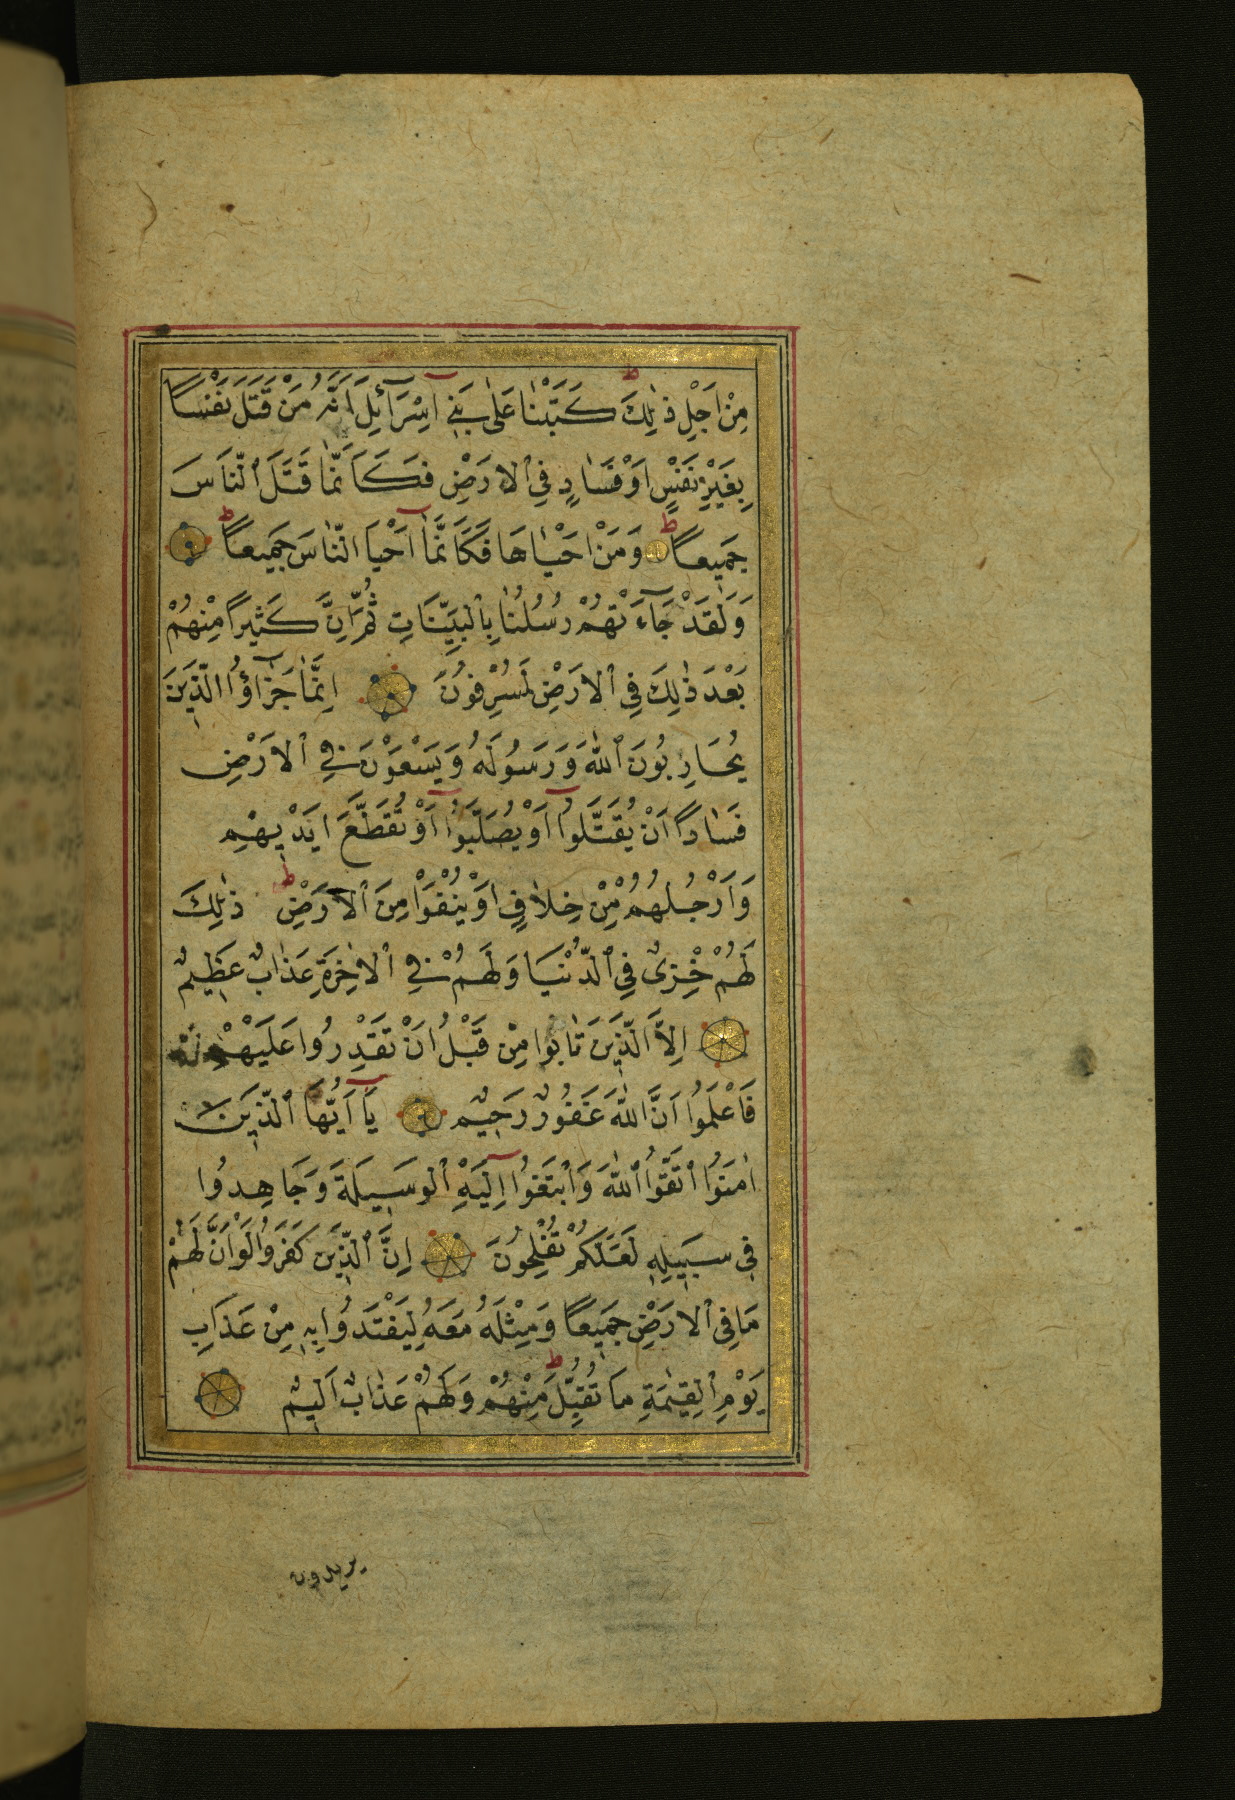 مِنْ اَجْلِ ذٰلِكَ كَتَبْنَا عَلٰى بَنِي اِسْرَآئِلَ اَنَّهُ مَنْ قَتَلَ نَفْسًا
بِغَيْرِ نَفْسٍ اَوْ فَسَادٍ فِي الْارَضِ فَكَاَنَّمَا قَتَلَ النَّاسَ
جَمِيعًا وَمَنْ اَحْيَاهَا فَكَاَنَّمَا اَحْيَا النَّاسَ جَمِيعًا
وَلَقَدْ جَآءَتْهُمْ رُسُلُنَا بِالْبَيِّنَاتِ ثُمَّ اِنَّ كَثِيرًا مِنْهُمْ
بَعْدَ ذٰلِكَ فِي الْارَضِ لَمُسْرِفُونَ اِنَّمَا جَزَاؤُا الَّذِينَ
يُحَارِبُونَ اللّٰهَ وَرَسُولَهُ وَيَسْعَوْنَ فِي الْارَضِ
فَسَادًا اَنْ يُقَتَّلُوا اَوْ يُصَلَّبُوا اَوْ تُقَطَّعَ اَيْدِيهِمْ
وَاَرْجُلُهُمْ مِنْ خِلَافٍ اَوْ يُنْفَوْا مِنَ الْارَضِ ذٰلِكَ
لَهُمْ خِزْىٌ فِي الدُّنْيَا وَلَهُمْ فِي الْاٰخِرَةِ عَذَابٌ عَظِيمٌ
اِلَّا الَّذِينَ تَابُوا مِنْ قَبْلِ اَنْ تَقْدِرُوا عَلَيْهِمْ
فَاعْلَمُوا اَنَّ اللّٰهَ غَفُورٌ رَحِيمٌ يَا اَيُّهَا الَّذِينَ
اٰمَنُوا اتَّقُوا اللّٰهَ وَابْتَغُوا اِلَيْهِ الْوَسِيلَةَ وَجَاهِدُوا
فِي سَبِيلِهِ لَعَلَّكُمْ تُفْلِحُونَ اِنَّ الَّذِينَ كَفَرُوا لَوْ اَنَّ لَهُمْ
مَا فِي الْارَضِ جَمِيعًا وَمِثْلَهُ مَعَهُ لِيَفْتَدُوا بِهِ مِنْ عَذَابِ
يَوْمِ الْقِيٰمَةِ مَا تُقُبِّلَ مِنْهُمْ وَلَهُمْ عَذَابٌ اَلِيمٌ
يريدون